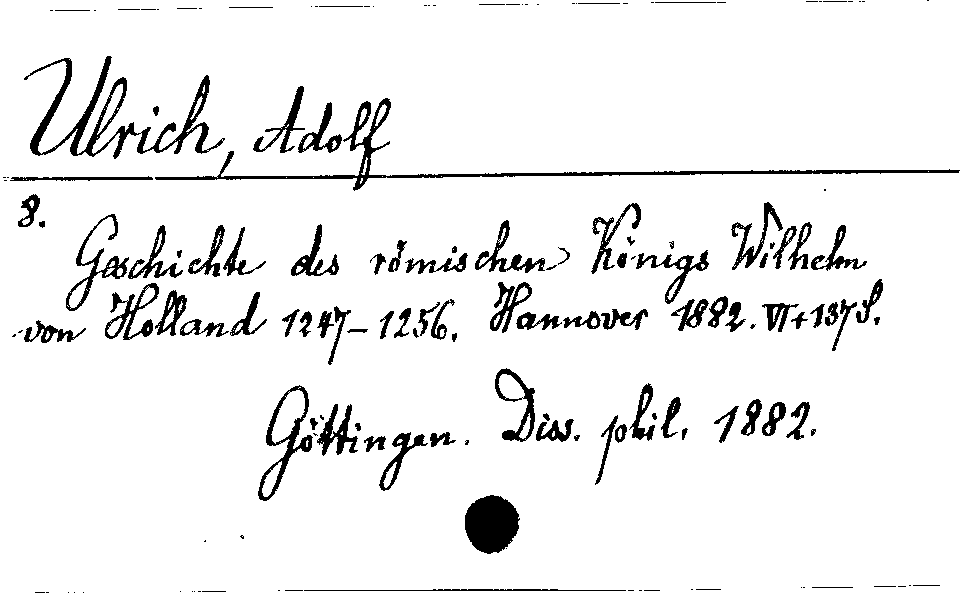 Ulrich, Adolf
8.
Geschichte des römischen Königs Wilhelm
von Holland 1247-1256. Hannover 1882. VI+137S.
Göttingen. Diss. phil. 1882.